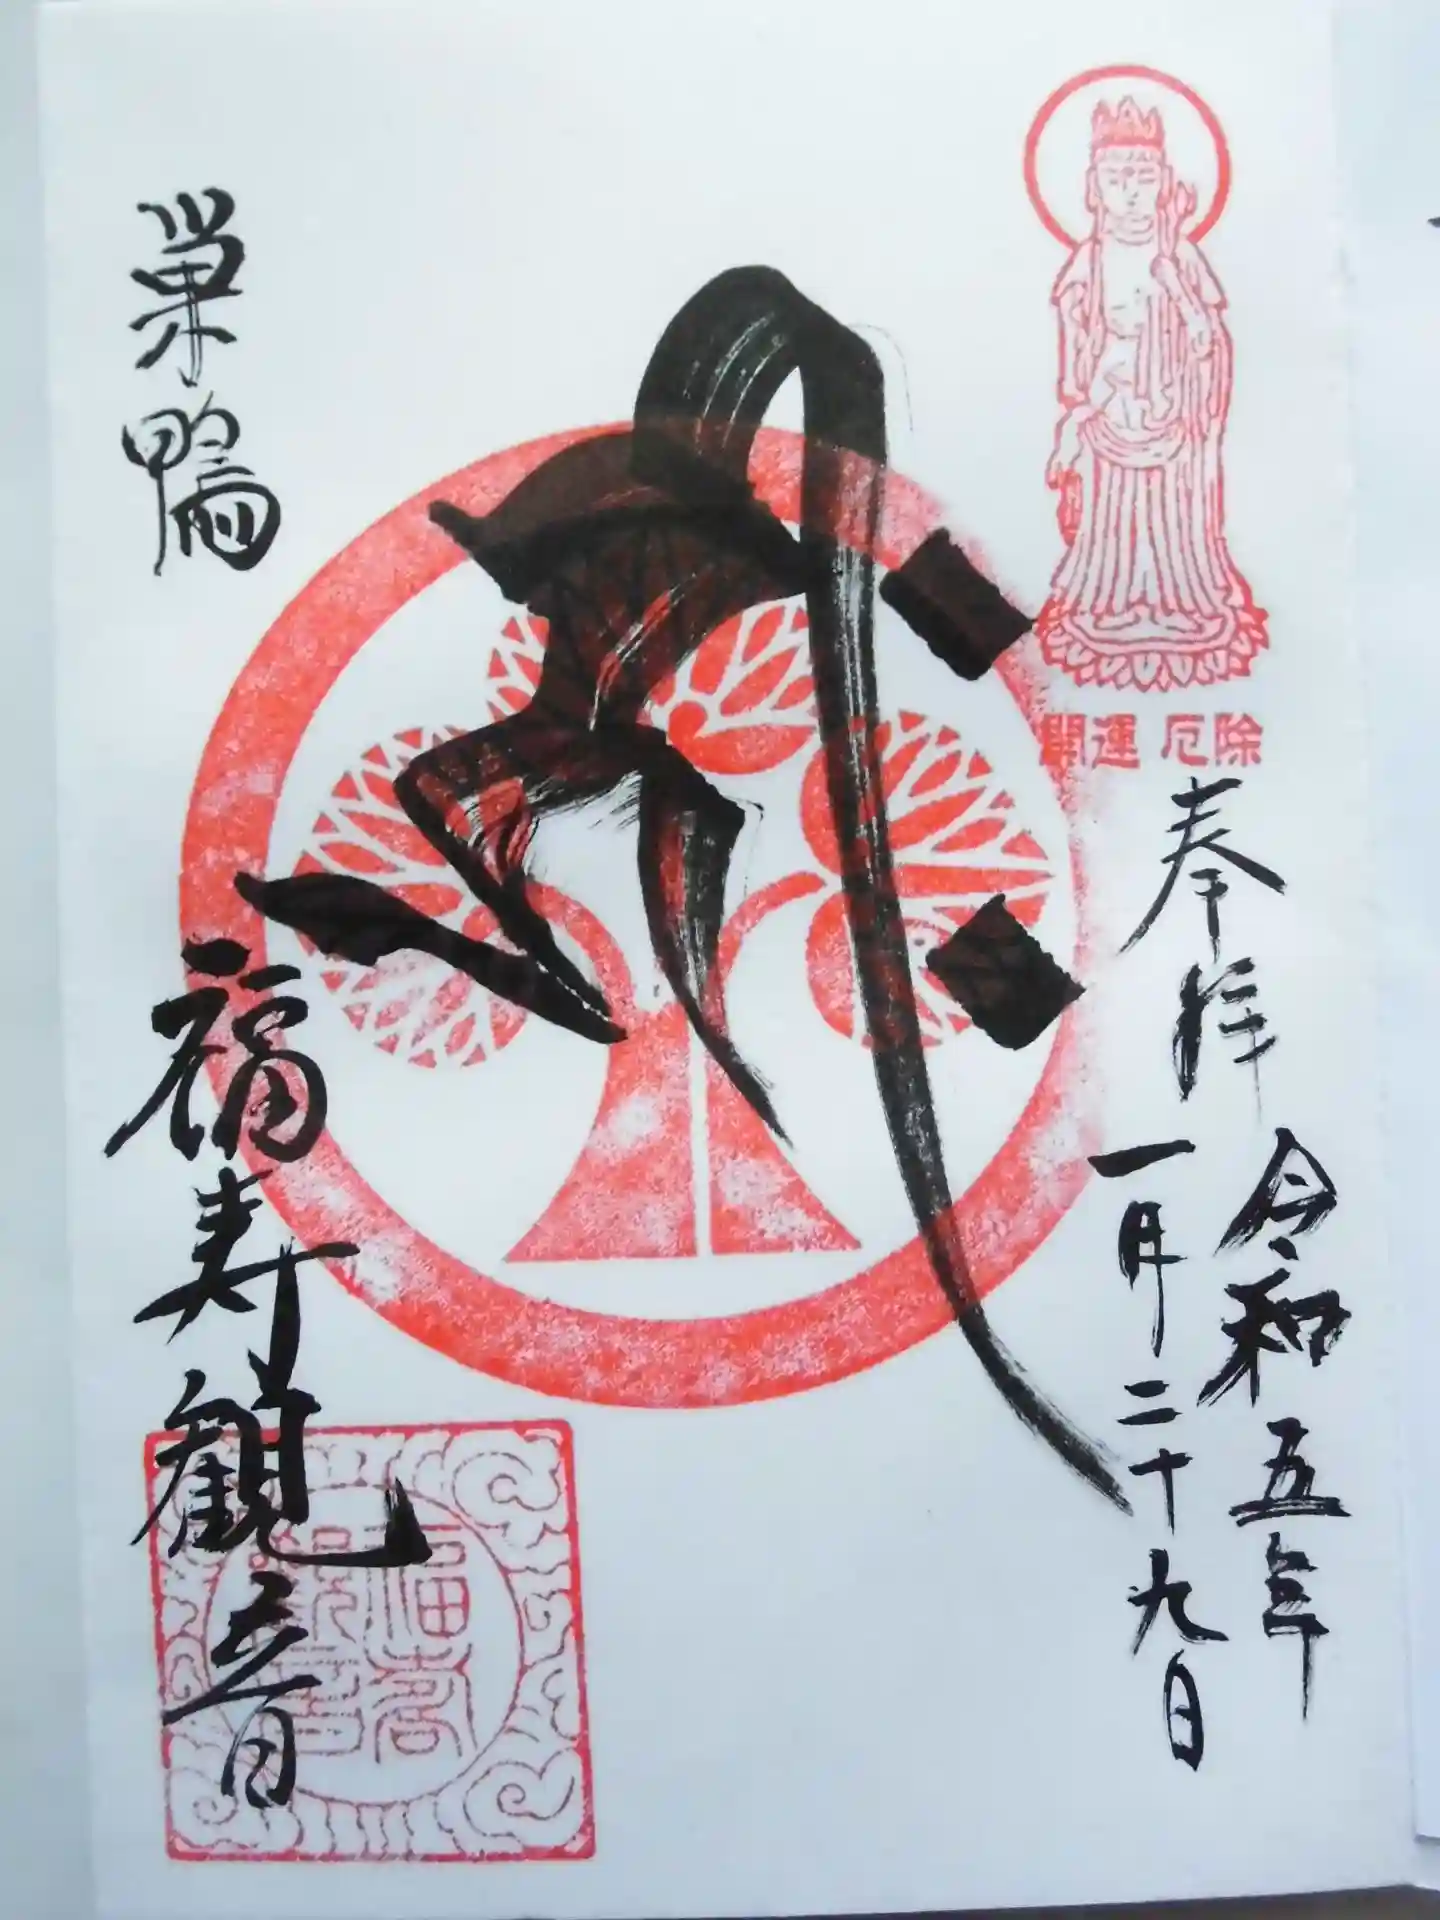 開運 厄除
奉拝
令和五年
一月二十九日
巣鴨
福寿観音